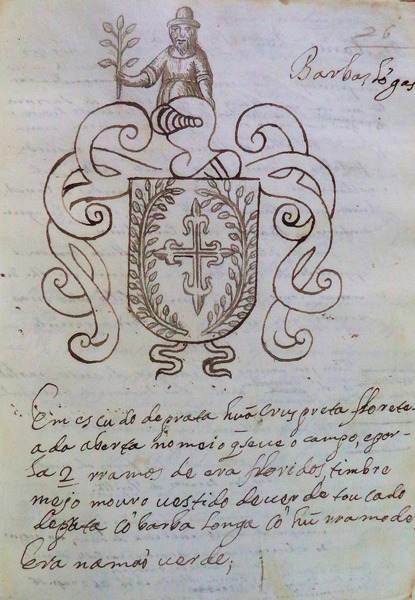 26
Barbas lõgas
Em escudo de prata huã Crus preta florete
ada aberta no meio q̃ se ve o campo, e por
2 rramos de era floridos, timbre
mejo mouro vestido de verde toucado
de prata cõ barba longa cõ hũ rramo de
Era na maõ verde;